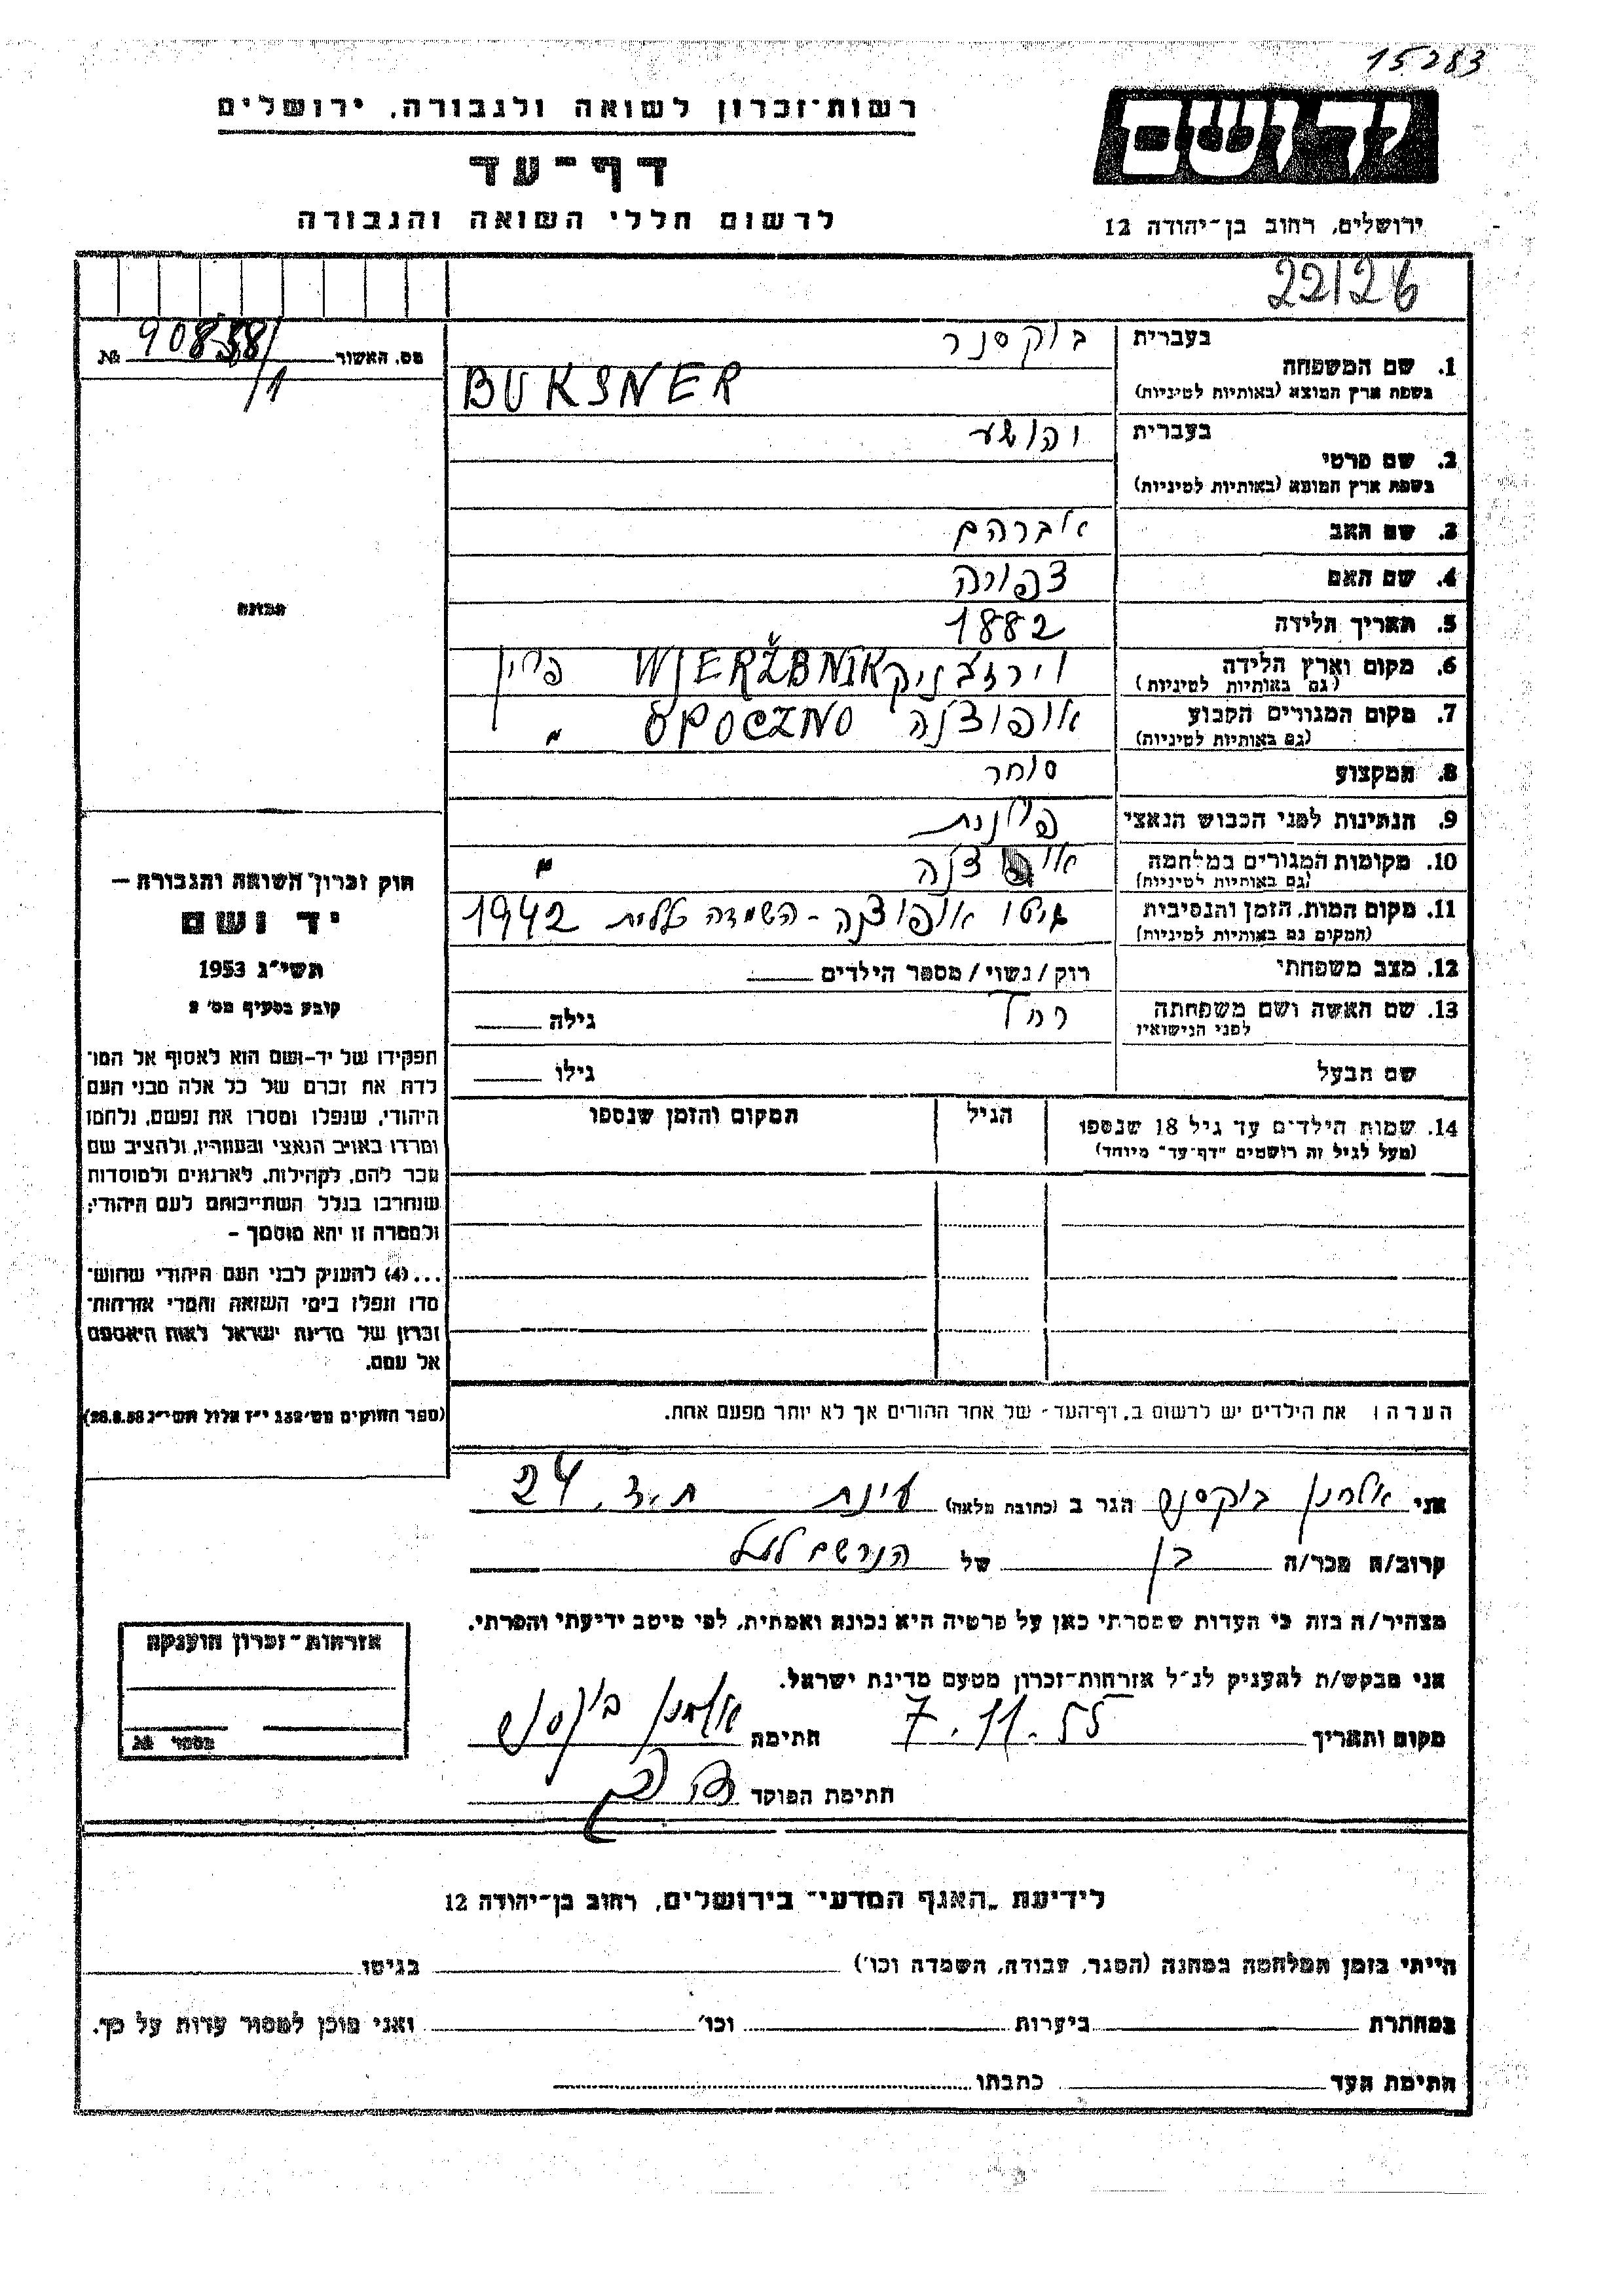 15283
רשות־זכרון לשואה ולגבורה, ירושלים
יד ושם
דף־עד
לרשום חללי השואה והגבורה
ירושלים, רחוב בן־יהודה 12
22126
מס. האשור № 90858/1
1. שם המשפחה
בעברית בוקסנר
בשפת ארץ המוצא (באותיות לטיניות) BUKSNER
2. שם פרטי
בעברית יהושע
בשפת ארץ המוצא (באותיות לטיניות)
3. שם האב אברהם
4. שם האם צפורה
5. תאריך הלידה 1882
6. מקום וארץ הלידה (גם באותיות לטיניות) וירזבניק WJERŻBNIK פולין
7. מקום המגורים הקבוע (גם באותיות לטיניות) אופוצ'נה OPOCZNO "
8. המקצוע סוחר
9. הנתינות לפני הכבוש הנאצי פולנית
10. מקומות המגורים במלחמה (גם באותיות לטיניות) אופוצ'נה "
11. מקום המות, הזמן והנסיבות (המקום גם באותיות לטיניות) גיטו אופוצ'נה - השמדה כללית 1942
12. מצב משפחתי רוק / נשוי / מספר הילדים
13. שם האשה ושם משפחתה לפני הנישואין רחל גילה
שם הבעל גילו
14. שמות הילדים עד גיל 18 שנספו (מעל לגיל זה רושמים "דף־עד" מיוחד) הגיל המקום והזמן שנספו
הערה: את הילדים יש לרשום ב„דף־העד" של אחד ההורים אך לא יותר מפעם אחת.
התמונה
חוק זכרון השואה והגבורה –
יד ושם
תשי״ג 1953
קובע בסעיף מס׳ 2
תפקידו של יד־ושם הוא לאסוף אל המו־
לדת את זכרם של כל אלה מבני העם
היהודי, שנפלו ומסרו את נפשם, נלחמו
ומרדו באויב הנאצי ובעוזריו, ולהציב שם
וזכר להם, לקהילות, לארגונים ולמוסדות
שנחרבו בגלל השתייכותם לעם היהודי;
ולמטרה זו יהא מוסמך –
...(4) להעניק לבני העם היהודי שהוש־
מדו ונפלו בימי השואה והמרי אזרחות־
זכרון של מדינת ישראל לאות היאספם
אל עמם.
(ספר החוקים מס׳ 132 י״ז אלול תשי״ג 28.8.53)
אני אלחנן בוקסנר הגר ב (כתובת מלאה) עינת ת.ד. 24
קרוב/ה מכר/ה בן של הנרשם לעיל
מצהיר/ה בזה כי העדות שמסרתי כאן על פרטיה היא נכונה ואמתית, לפי מיטב ידיעתי והכרתי.
אני מבקש/ת להעניק לנ״ל אזרחות־זכרון מטעם מדינת ישראל.
מקום ותאריך 7.11.55 חתימה אלחנן בוקסנר
חתימת הפוקד
אזרחות־זכרון הוענקה
מספר №
לידיעת „האגף המדעי" בירושלים, רחוב בן־יהודה 12
הייתי בזמן המלחמה במחנה (הסגר, עבודה, השמדה וכו׳) בגיטו
במחתרת ביערות וכו׳ ואני מוכן למסור עדות על כך.
חתימת העד כתבתו